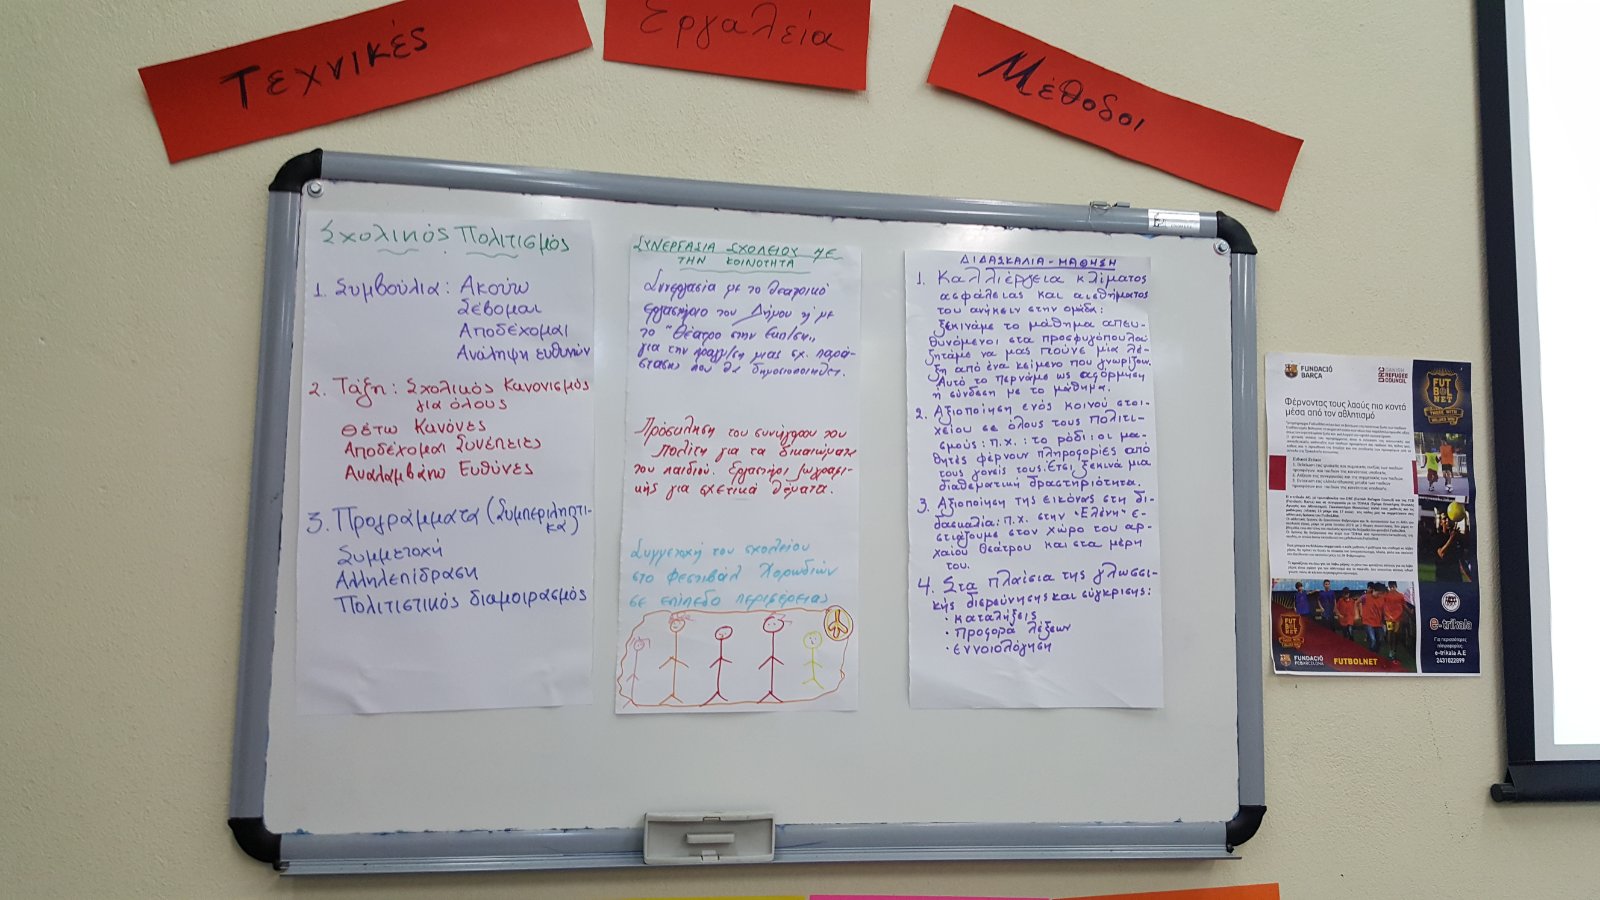 Τεχνικές
Εργαλεία
Μέθοδοι
Σχολικός Πολιτισμός
1. Συμβούλια: Ακούω
Σέβομαι
Αποδέχομαι
Ανάληψη ευθυνών
2. Τάξη: Σχολικός Κανονισμός
για όλους
Θέτω Κανόνες
Αποδέχομαι Συνέπειες
Αναλαμβάνω Ευθύνες
3. Προγράμματα (Συμπεριληπτι-
κά)
Συμμετοχή
Αλληλεπίδραση
Πολιτιστικός διαμοιρασμός
ΣΥΝΕΡΓΑΣΙΑ ΣΧΟΛΕΙΟΥ ΜΕ
ΤΗΝ ΚΟΙΝΟΤΗΤΑ
Συνεργασία με το θεατρικό
εργαστήριο του Δήμου ή με
το "Θέατρο στην Εκπ/ση,,
για την πραγμ/ση μιας σχ. παρά-
στασης που θα δημοσιοποιηθεί.
Πρόσκληση του συνήγορου του
Πολίτη για τα δικαιώματα
του παιδιού. Εργαστήρι ζωγραφι-
κής για σχετικά θέματα.
Συμμετοχή του σχολείου
στο Φεστιβάλ Χορωδιών
σε επίπεδο περιφέρειας
ΔΙΔΑΣΚΑΛΙΑ - ΜΑΘΗΣΗ
1. Καλλιέργεια κλίματος
ασφάλειας και αισθήματος
του ανήκειν στην ομάδα:
ξεκινάμε το μάθημα απευ-
θυνόμενοι στα προσφυγόπουλα
ζητάμε να μας πούνε μία λέ-
ξη από ένα κείμενο που γνωρίζουν.
Αυτό το περνάμε ως αφόρμηση
ή σύνδεση με το μάθημα.
2. Αξιοποίηση ενός κοινού στοι-
χείου σε όλους τους πολιτι-
σμούς: π.χ.: το ρόδι: οι μα-
θητές φέρνουν πληροφορίες από
τους γονείς τους. Έτσι ξεκινά μια
διαθεματική δραστηριότητα.
3. Αξιοποίηση της εικόνας στη δι-
δασκαλία: π.χ. στην "Ελένη" ε-
στιάζουμε στον χώρο του αρ-
χαίου θεάτρου και στα μέρη
του.
4. Στα πλαίσια της γλωσσι-
κής διερεύνησης και σύγκρισης:
· καταλήξεις
· προφορά λέξεων
· εννοιολόγηση
FUNDACIÓ
BARÇA
DANISH
REFUGEE
COUNCIL
FUT
BOL
NET
Φέρνοντας τους λαούς πιο κοντά
μέσα από τον αθλητισμό
FUT
BOL
NET
FUNDACIÓ
FCBARCELONA
FUTBOLNET
e-trikala
Για περισσότερες
πληροφορίες:
e-trikala A.E
2431022899